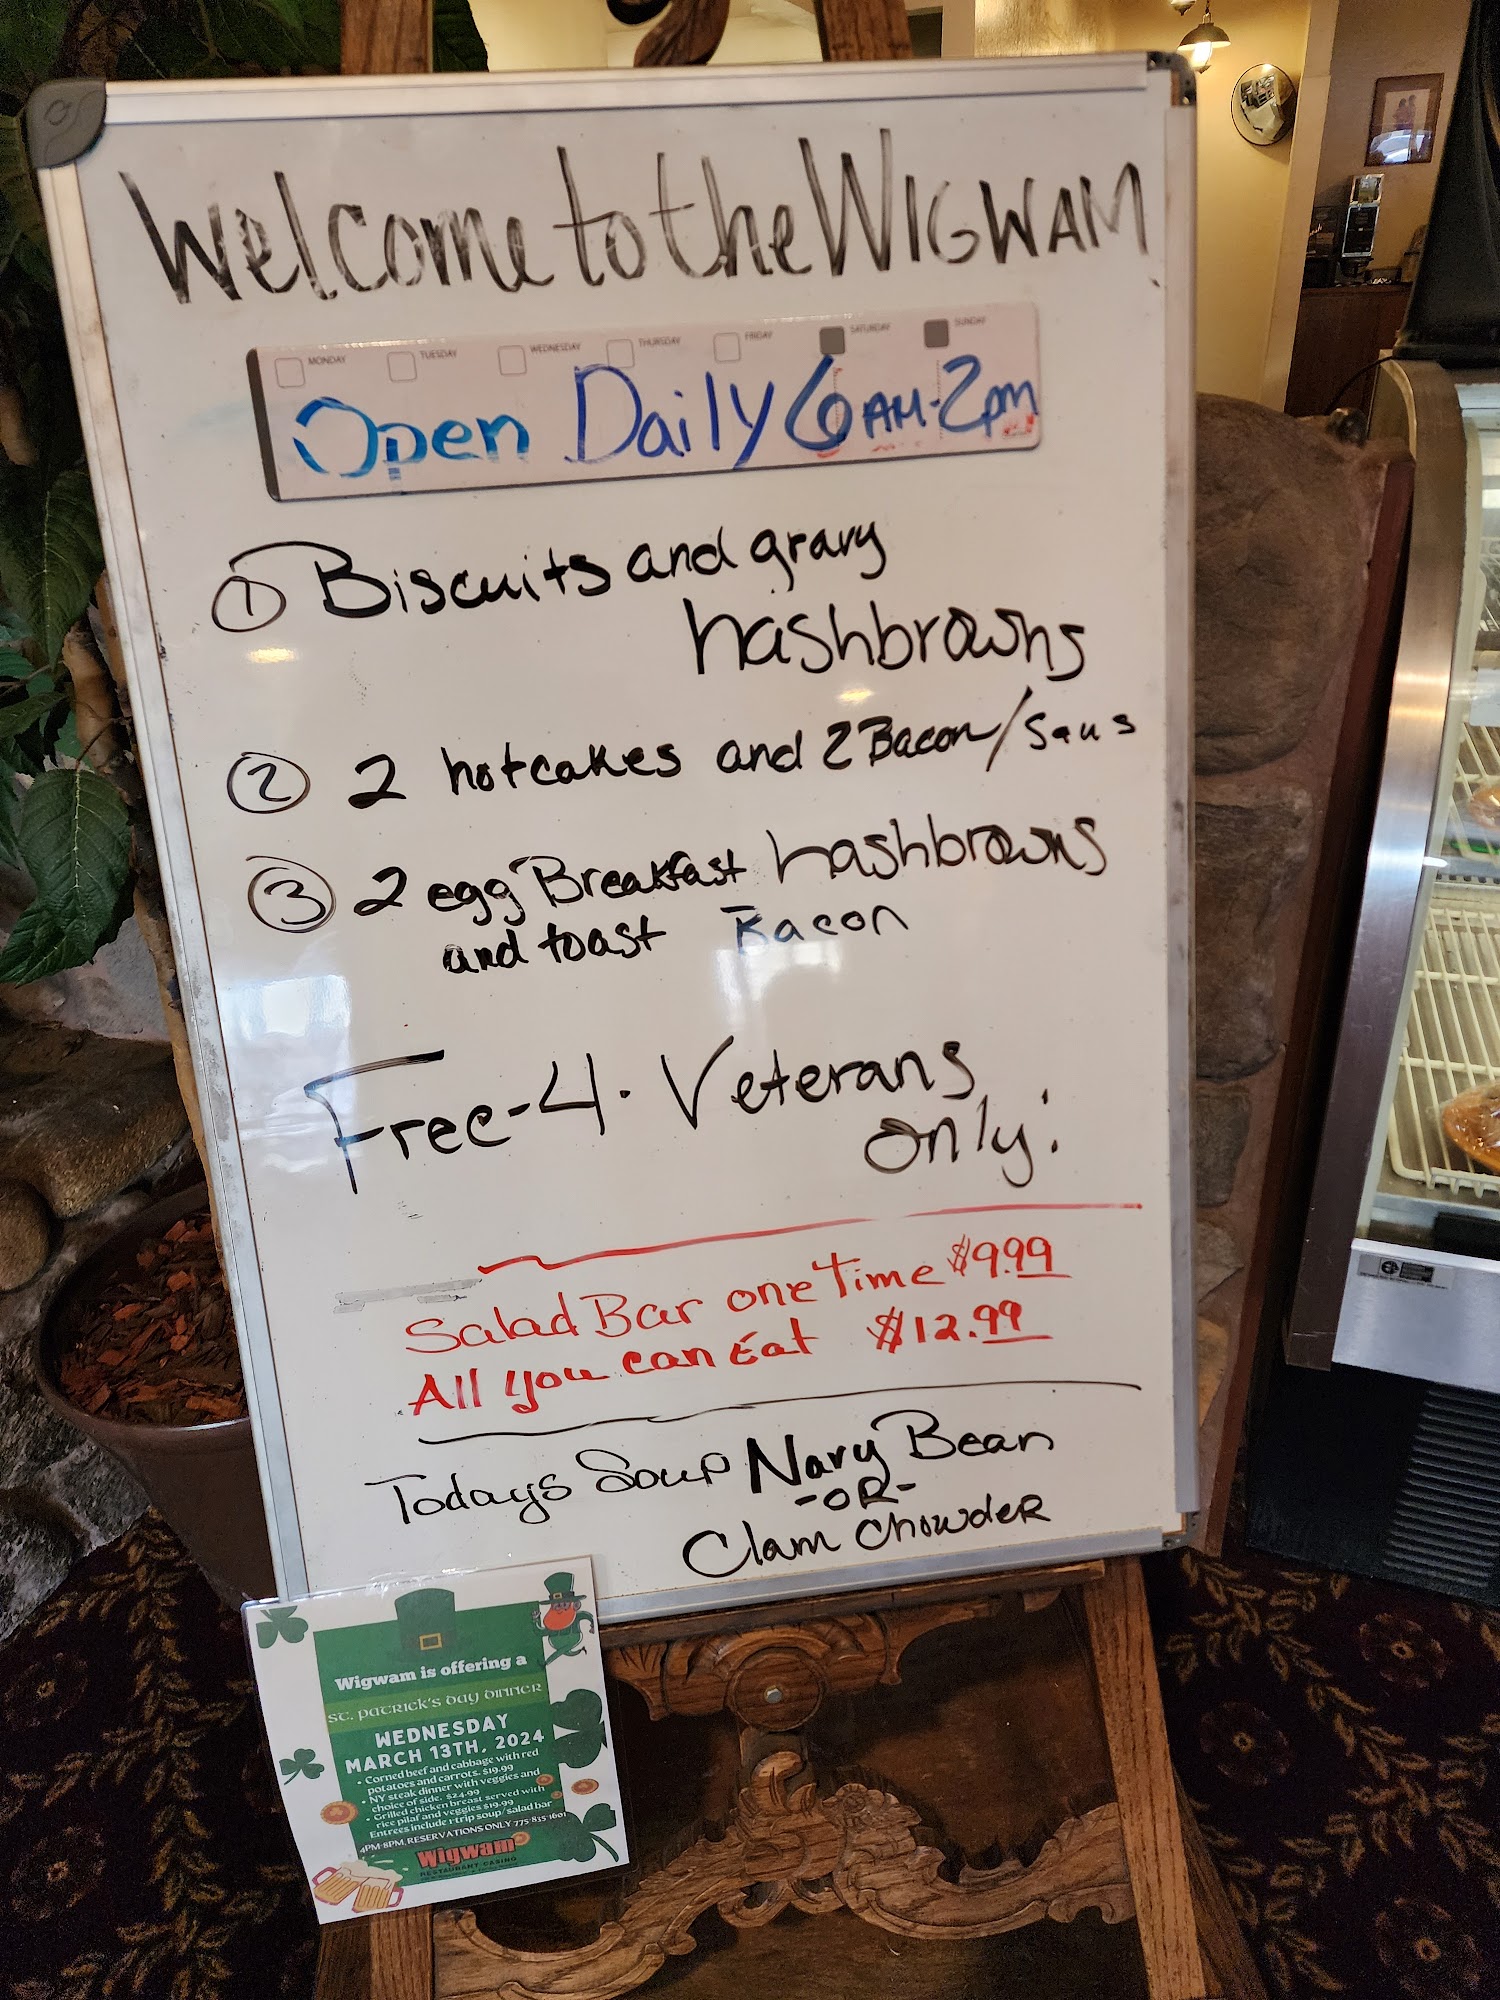 Welcome to the WIGWAM
MONDAY TUESDAY WEDNESDAY THURSDAY FRIDAY SATURDAY SUNDAY
Open Daily 6AM-2pm
1 Biscuits and gravy
hashbrowns
2 2 hotcakes and 2 Bacon/saus
3 2 egg Breakfast hashbrowns
and toast Bacon
Free-4. Veterans
only!
Salad Bar one Time $9.99
All you can Eat $12.99
Todays Soup Navy Bean
-OR-
Clam Chowder
Wigwam is offering a
ST. PATRICK'S DAY DINNER
WEDNESDAY
MARCH 13TH, 2024
• Corned beef and cabbage with red
potatoes and carrots. $19.99
• NY steak dinner with veggies and
choice of side. $24.99
• Grilled chicken breast served with
rice pilaf and veggies $19.99
Entrees include 1 trip soup/salad bar
4PM-8PM. RESERVATIONS ONLY 775-835-1601
Wigwam
RESTAURANT CASINO